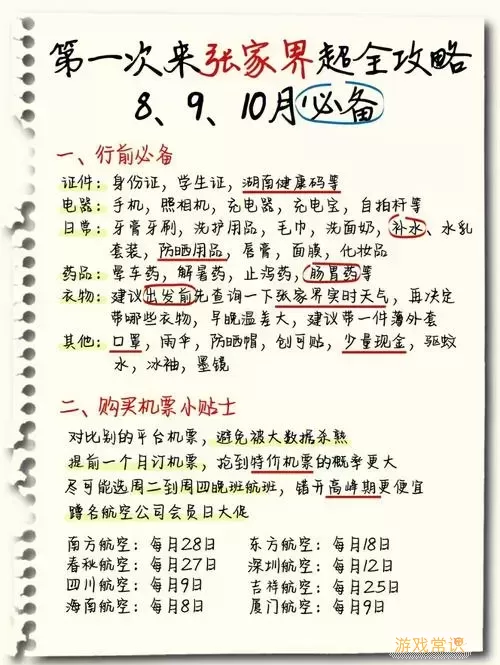 第一次来张家界超全攻略
8、9、10月必备
一、行前必备
证件：身份证，学生证，湖南健康码等
电器：手机，照相机，充电器，充电宝，自拍杆等
日常：牙膏牙刷，洗护用品，毛巾，洗面奶，补水、水乳
套装，防晒用品，唇膏，面膜，化妆品
药品：晕车药，解暑药，止泻药，肠胃药等
衣物：建议出发前先查询一下张家界实时天气，再决定
带哪些衣物，早晚温差大，建议带一件薄外套
其他：口罩，雨伞，防晒帽，创可贴，少量现金，驱蚊
水，冰袖，墨镜
二、购买机票小贴士
对比别的平台机票，避免被大数据杀熟
提前一个月订机票，抢到特价机票的概率更大
尽可能选周二到周四晚班航班，错开高峰期更便宜
蹲各航空公司会员日大促
南方航空：每月28日 东方航空：每月18日
春秋航空：每月27日 深圳航空：每月12日
四川航空：每月9日 吉祥航空：每月25日
海南航空：每月8日 厦门航空：每月9日
游戏常识